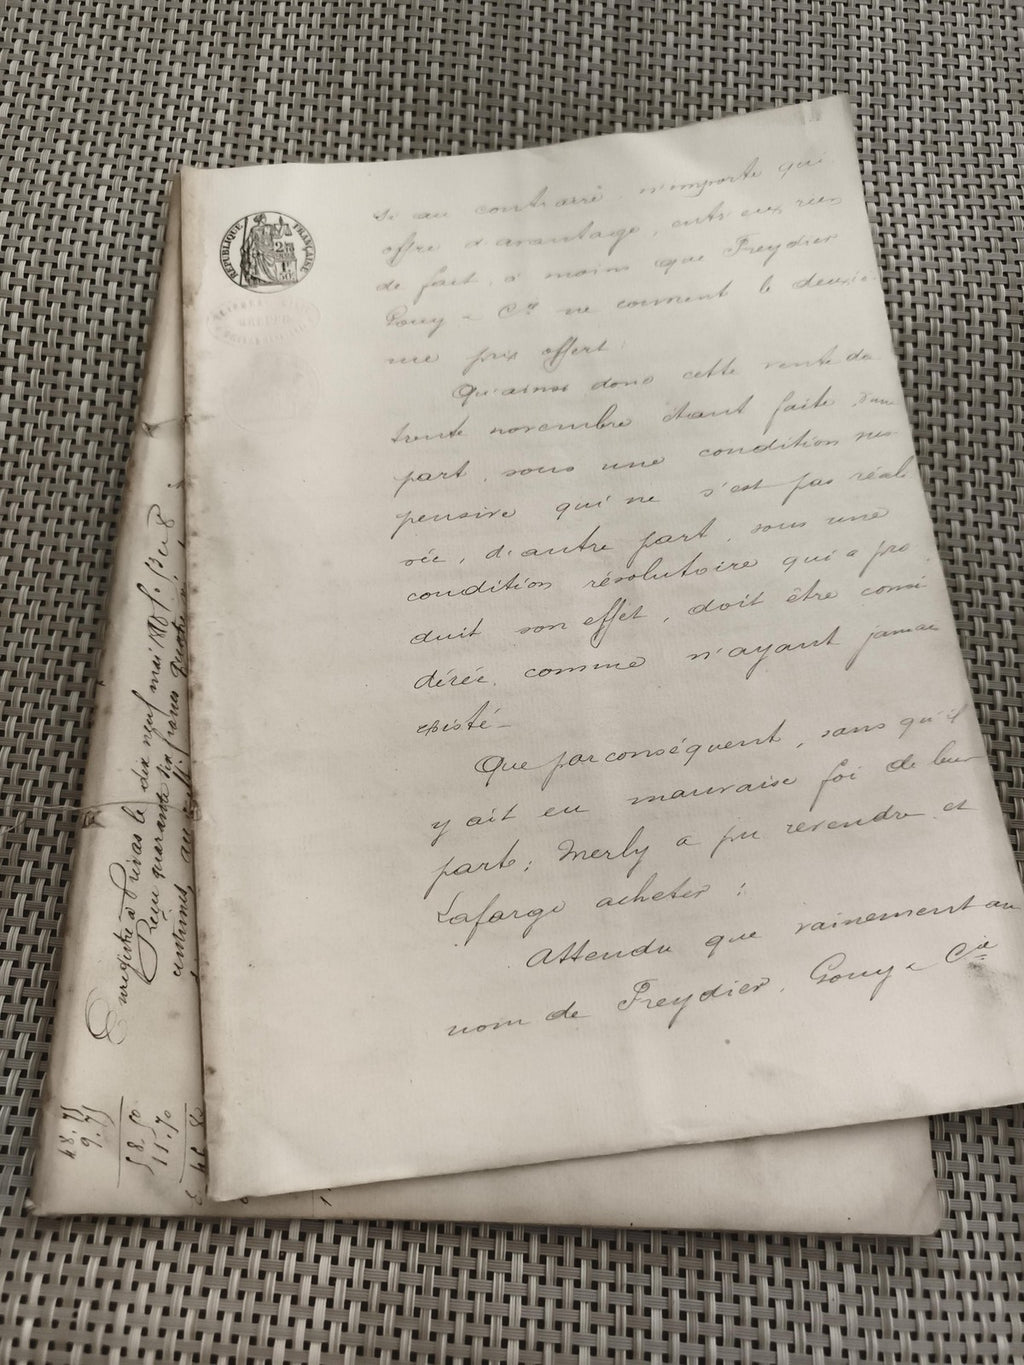 RÉPUBLIQUE FRANÇAISE
si au contraire n'importe qui
offre d'avantage, entr'eux rien
de fait, à moins que Freydier
Gouy & Cie ne couvrent le deuxiè-
me prix offert :
Qu'ainsi donc cette vente du
trente novembre étant faite d'une
part, sous une condition sus
pensive qui ne s'est pas réali
sée, d'autre part, sous une
condition résolutoire qui a pro
duit son effet, doit être consi
dérée comme n'ayant jamais
existé-
Que par conséquent, sans qu'il
y ait eu mauvaise foi de leur
part; Merly a pu revendre et
Lafarge acheter :
Attendu que vainement au
nom de Freydier, Gouy & Cie
Enregistré à Privas le dix neuf mai
Reçu quarante six francs quatre
centimes
48.75
9.75
58.50
11.70